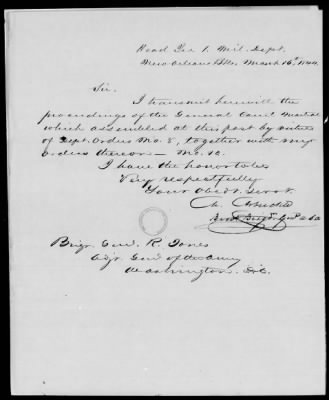 Head Qrs 1. Mil. Dept.
New Orleans Bks. March 16th, 1844.
Sir.
I transmit herewith the
proceedings of the General Court Martial
which assembled at this post by virtue
of Dept. Orders No. 8, together with my
orders thereon — No. 12.
I have the honor to be
Very respectfully
Your Obedt. Servt.
Brig. Gen. R. Jones
Adjt. Genl. of the Army
Washington. D.C.